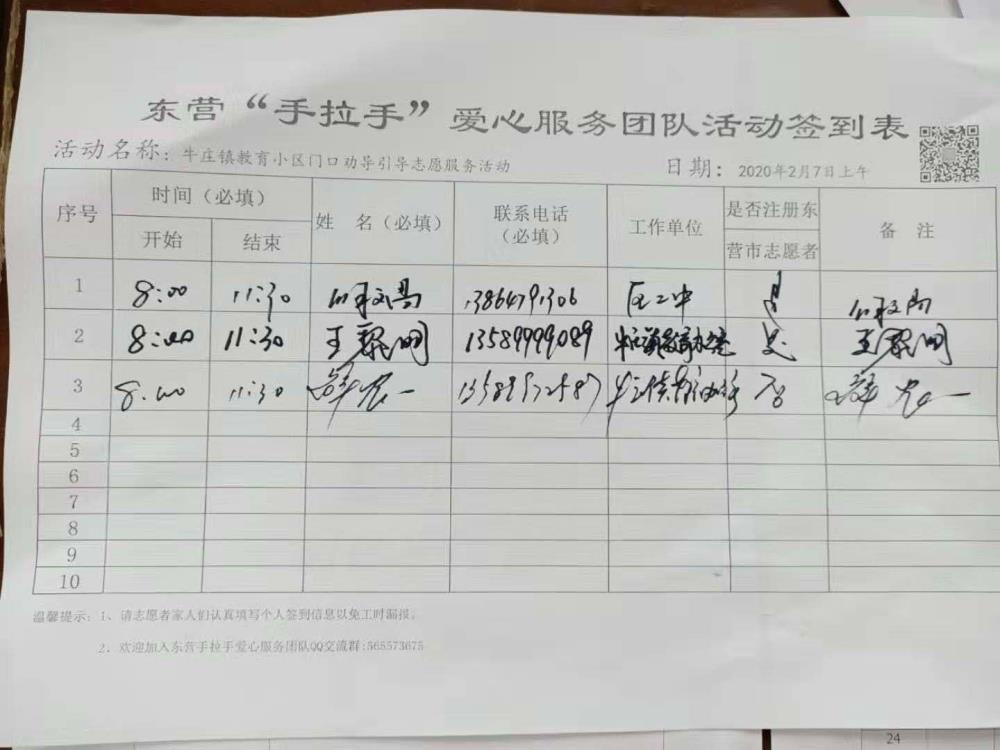 东营“手拉手”爱心服务团队活动签到表
活动名称：牛庄镇教育小区门口劝导引导志愿服务活动 日期：2020年2月7日上午
序号 时间（必填） 姓 名（必填） 联系电话（必填） 工作单位 是否注册东营市志愿者 备 注
开始 结束
1 8:00 11:30 13864791306 二中
2 8:00 11:30 王黎明 13589999089 是 王黎明
3 8:00 11:30 薛农一 否 薛农一
4
5
6
7
8
9
10
温馨提示：1、请志愿者家人们认真填写个人签到信息以免工时漏报。
2．欢迎加入东营手拉手爱心服务团队QQ交流群:565573675
24